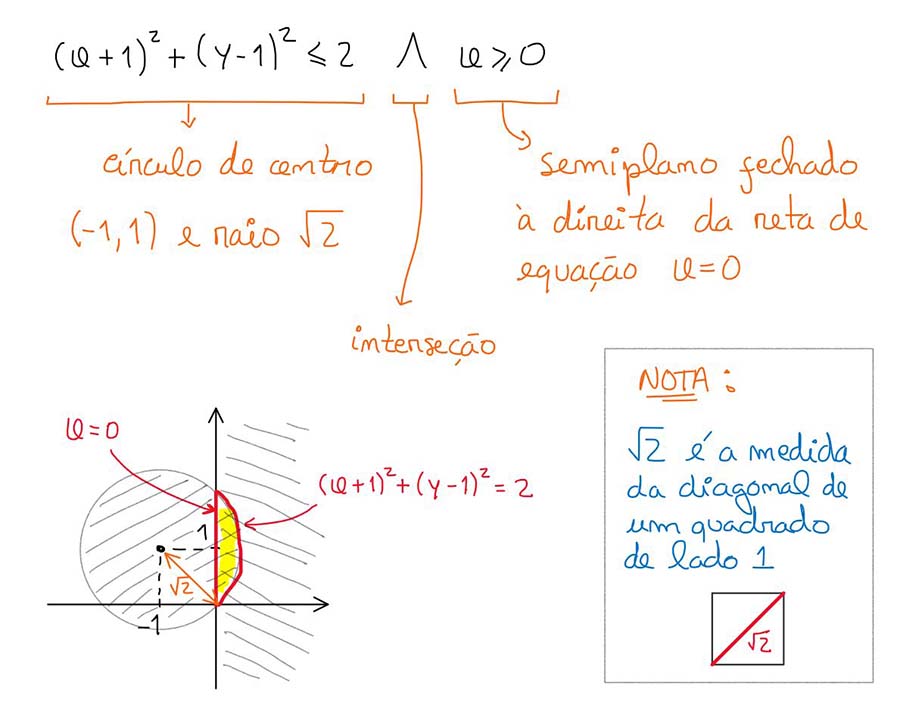 (x+1)² + (y-1)² ≤ 2 ∧ x ≥ 0
círculo de centro
(-1,1) e raio √2
semiplano fechado
à direita da reta de
equação x=0
interseção
x=0
(x+1)²+(y-1)²=2
1
√2
-1
NOTA:
√2 é a medida
da diagonal de
um quadrado
de lado 1
√2